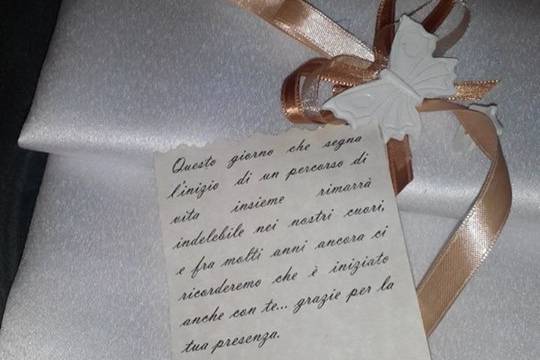 Questo giorno che segna
l'inizio di un percorso di
vita insieme rimarrà
indelebile nei nostri cuori,
e fra molti anni ancora ci
ricorderemo che è iniziato
anche con te... grazie per la
tua presenza.